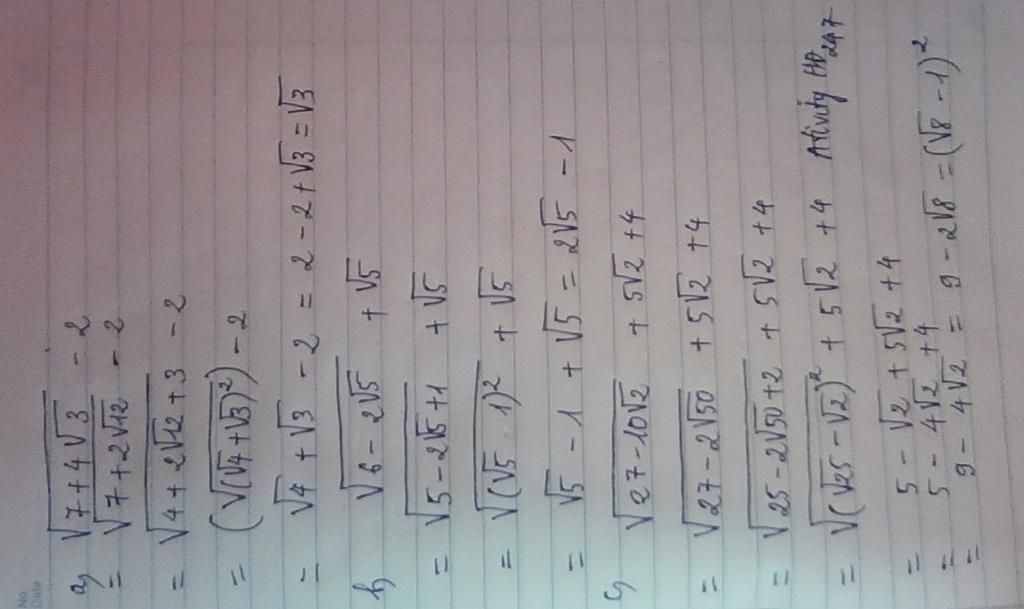 No.
Date
a) √(7 + 4√3) - 2
= √(7 + 2√12) - 2
= √(4 + 2√12 + 3) - 2
= (√(√4 + √3)²) - 2
= √4 + √3 - 2 = 2 - 2 + √3 = √3
b) √(6 - 2√5) + √5
= √(5 - 2√5 + 1) + √5
= √(√5 - 1)² + √5
= √5 - 1 + √5 = 2√5 - 1
c) √(27 - 10√2) + 5√2 + 4
= √(27 - 2√50) + 5√2 + 4
= √(25 - 2√50 + 2) + 5√2 + 4
= √(√25 - √2)² + 5√2 + 4 Ativity HD 247
= 5 - √2 + 5√2 + 4
= 5 - 4√2 + 4
= 9 - 4√2 = 9 - 2√8 = (√8 - 1)²